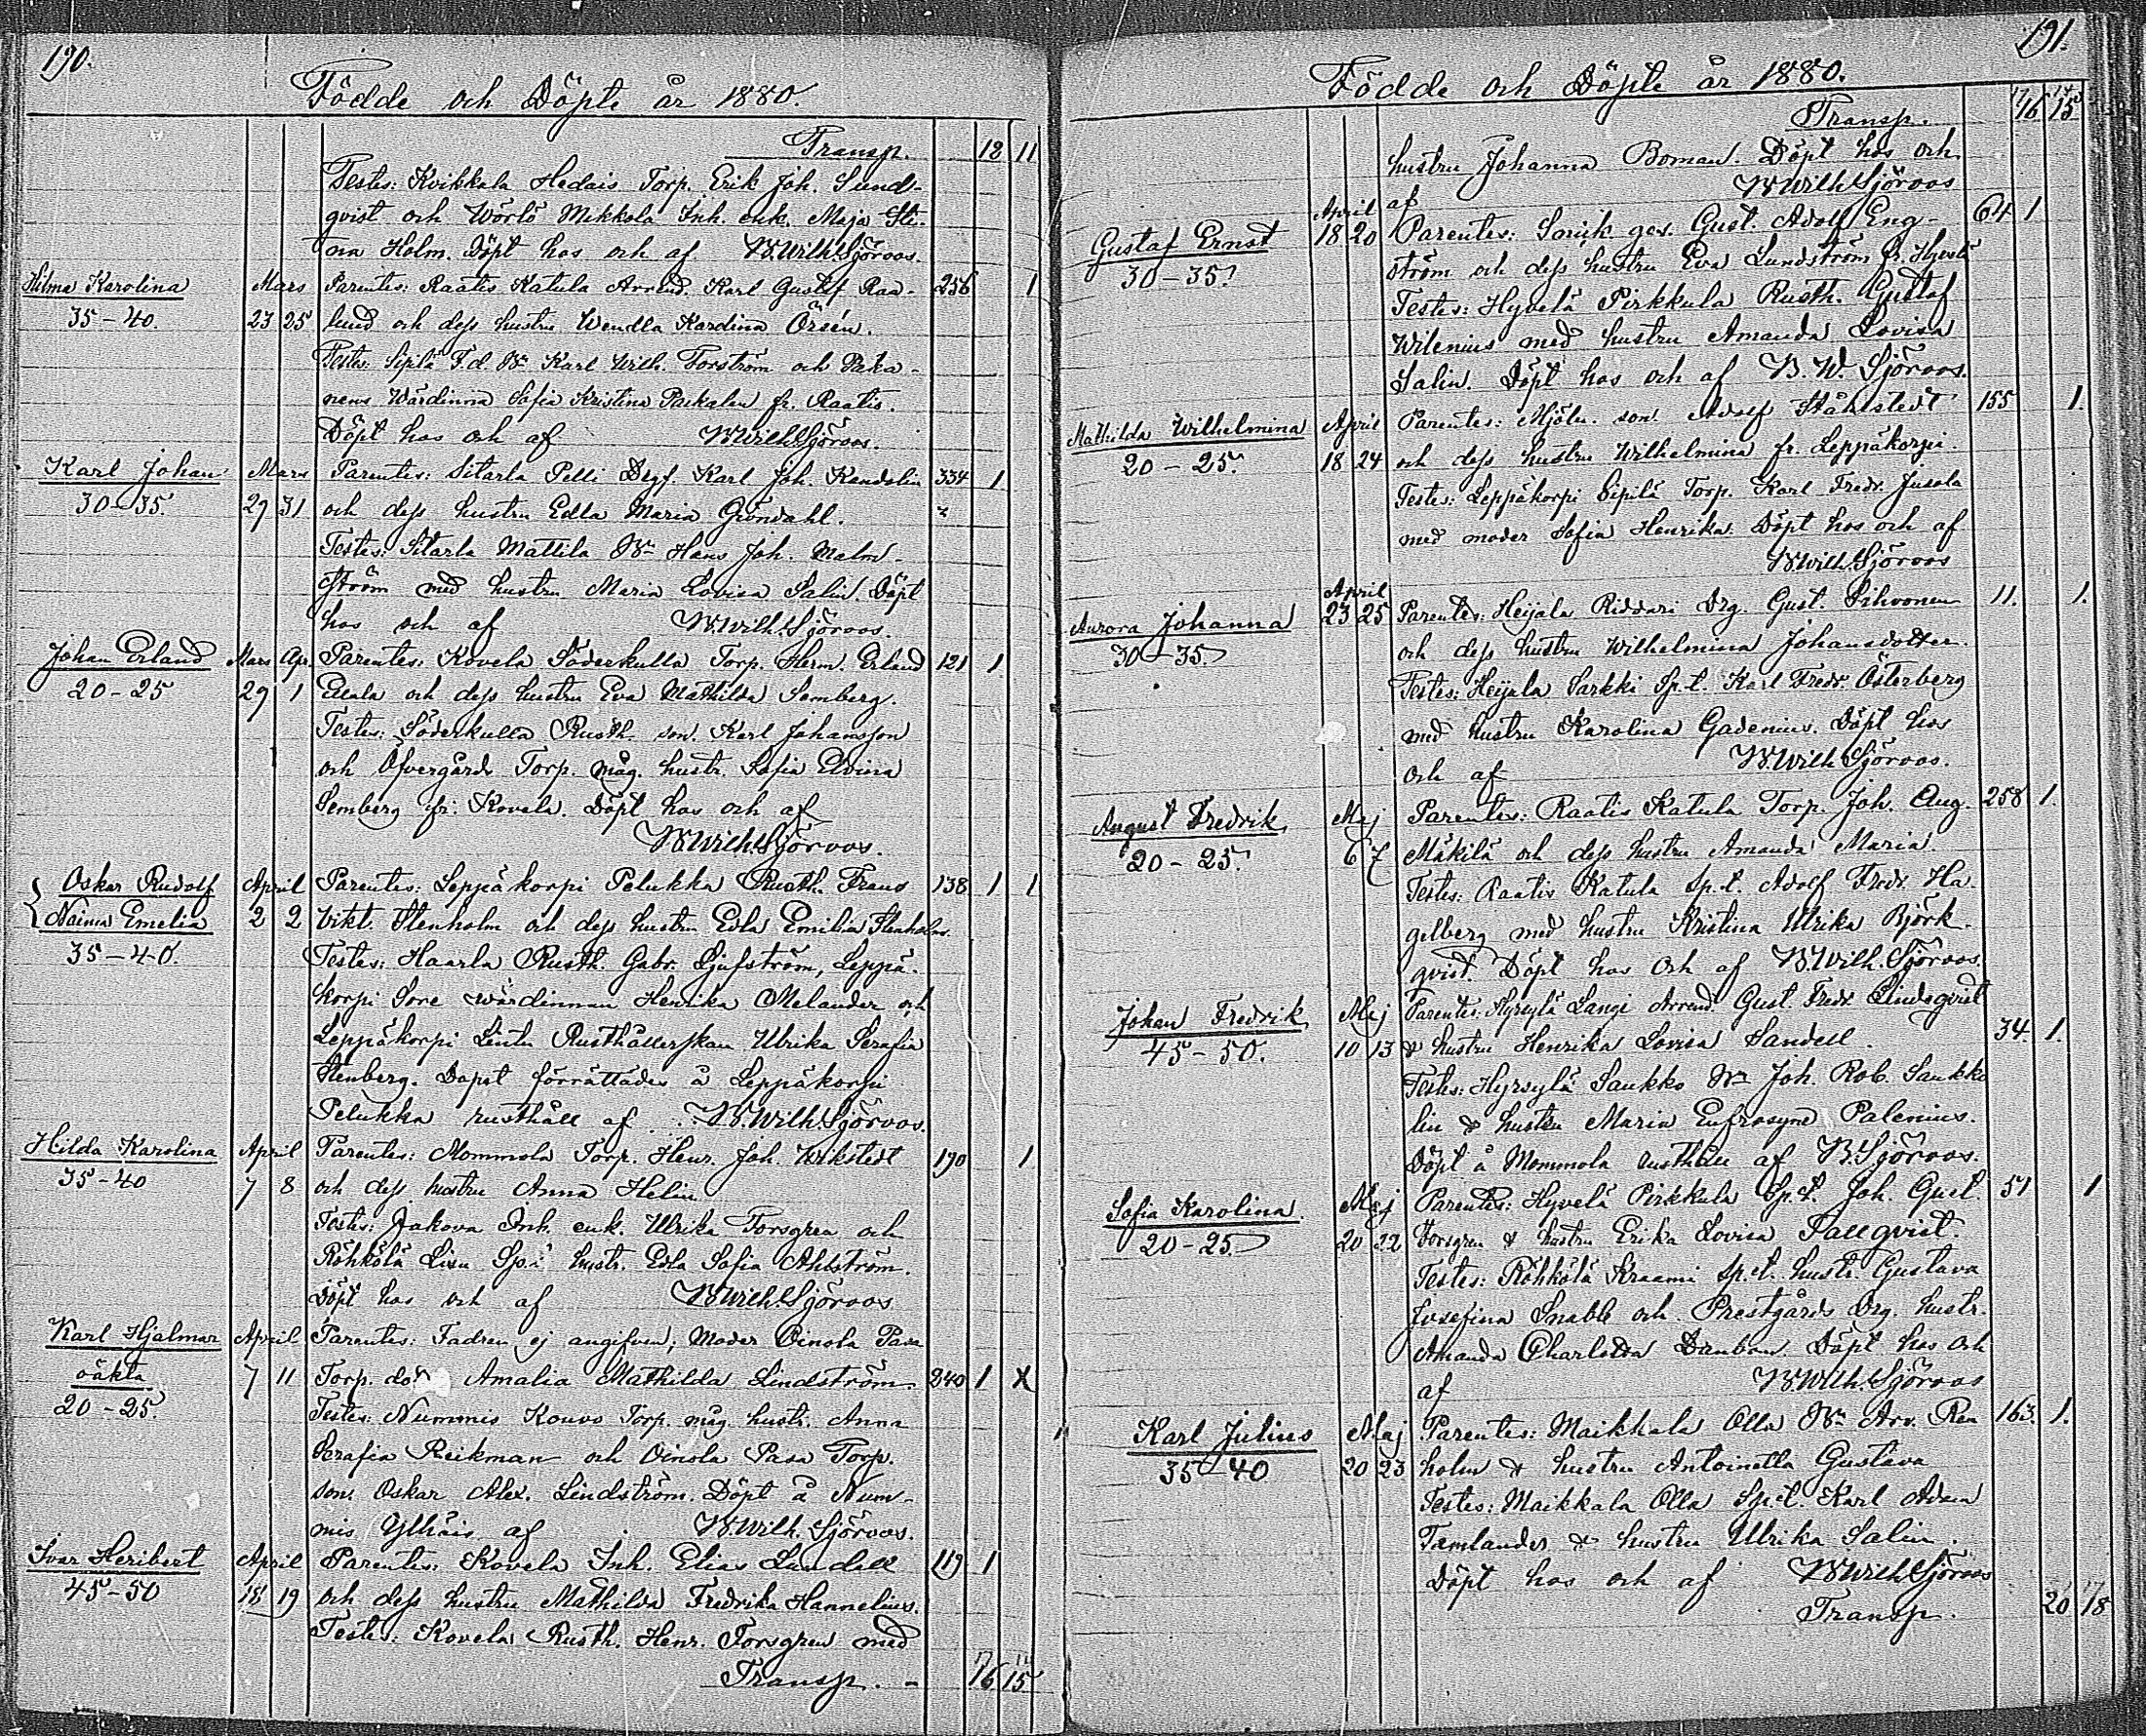 190.
Födde och Döpte år 1880.
Transp. 12 11
Testes: Kvikkala Hedais Torp. Erik Joh. Sund-
qvist och Wörlö Mikkola Inh. enk. Maja Sti-
na Holm. Döpt hos och af B.Wilh.Sjöroos.
Hilma Karolina Mars Parentes: Raatis Katula Arrend. Karl Gustaf Raa- 256 1
35-40. 23 25 lund och dess hustru Wendla Karolina Örsén.
Testes: Sipilä F.d. Karl Wilh. Forström och Paka-
nens Wärdinna Sofia Kristina fr. Raatis.
Döpt hos och af B.Wilh.Sjöroos.
Karl Johan Mars Parentes: Sitarla Pelli Karl Joh. Kandelin 334 1
30-35. 29 31 och dess hustru Edla Maria Gröndahl.
Testes: Sitarla Mattila Hans Joh. Malm-
ström med hustru Maria Lovisa Salin. Döpt
hos och af B.Wilh.Sjöroos.
Johan Erland Mars Apr. Parentes: Kovela Söderkulla Torp. Herm. Erland 121 1.
20-25 29 1 och dess hustru Eva Mathilda Semberg.
Testes: Söderkulla Rusth. son. Karl Johansson
och Öfvergårds Torp. måg. hustr. Sofia Elvira
Semberg fr. Kovela. Döpt hos och af
B.Wilh.Sjöroos.
Oskar Rudolf April Parentes: Leppäkorpi Pelukka Rusth. Frans 138 1 1
Naima Emelia 2 2 Vikt. Stenholm och dess hustru Edla Emilia Stenholm.
35-40. Testes: Haarla Rusth. Gabr. Ljufström, Leppä-
korpi Sore wärdinnan Henrika Melander och
Leppäkorpi Lintu Rusthållerskan Ulrika Serafia
Stenberg. Dopet förrättades å Leppäkorpi
Pelukka rusthåll af B.Wilh.Sjöroos.
Hilda Karolina April Parentes: Mommola Torp. Henr. Joh. Wikstedt 190 1
35-40 7 8 och dess hustru Anna Helin.
Testes: Jakova Inh. enk. Ulrika Forsgren och
Röhkölä Lisu Sp.t. hustr. Edla Sofia Ahlström.
Döpt hos och af B.Wilh.Sjöroos
Karl Hjalmar April Parentes: Fadren ej angifven; Moder Oinola Pasa
oäkta 7 11 Torp. dot. Amalia Mathilda Lindström. 240 1 X
20-25. Testes: Nummis Kouvo Torp. måg. hustr. Anna
Serafia Reikman och Oinola Pasa Torp.
son. Oskar Alex. Lindström. Döpt å Num-
mis Ylhäis af B.Wilh.Sjöroos.
Ivar Heribert April Parentes: Kovela Inh. Elias Lundell 119 1
45-50 18 19 och dess hustru Mathilda Fredrika Hannelius.
Testes: Kovela Rusth. Henr. Forsgren med
Transp. 16 15
191.
Födde och Döpte år 1880.
Transp. 16 15
hustru Johanna Boman. Döpt hos och
af B.Wilh.Sjöroos
Gustaf Ernst April 18 20 Parentes: Gust. Adolf Eng- 64 1
30-35. ström och dess hustru Eva Lundström fr. Hyvelä
Testes: Hyvelä Pirkkula Rusth. Gustaf
Wilenius med hustru Amanda Lovisa
Salin. Döpt hos och af B. W. Sjöroos.
Mathilda Wilhelmina April Parentes: Mjöln. son. Adolf Ståhlstedt 155 1.
20-25. 18 24 och dess hustru Wilhelmina fr. Leppäkorpi.
Testes: Leppäkorpi Sipilä Torp. Karl Fredr. Jusola
med moder Sofia Henrika. Döpt hos och af
B.Wilh.Sjöroos
Aurora Johanna April 23 25 Parentes: Heijala Riddari Drg. Gust. Sihvonen 11. 1.
30-35. och dess hustru Wilhelmina Johansdotter.
Testes: Heijala Sarkki Sp.t. Karl Fredr. Österberg
med hustru Karolina Gadenius. Döpt hos
och af B.Wilh.Sjöroos.
August Fredrik Maj Parentes: Raatis Katula Torp. Joh. Aug. 258 1.
20-25. 6 7 Mäkilä och dess hustru Amanda Maria.
Testes: Raatis Katula Sp.t. Adolf Fredr. Ha-
gelberg med hustru Kristina Ulrika Björk-
qvist. Döpt hos och af B.Wilh.Sjöroos.
Johan Fredrik Maj Parentes: Hyrsylä Langi Arrend. Gust. Fredr. Lindqvist
45-50. 10 13 & hustru Henrika Lovisa Sandell. 34. 1.
Testes: Hyrsylä Saukko Joh. Rob. Saukko-
lin & hustru Maria Eufrosyne Palenius.
Döpt å Mommola rusthåll af B.Sjöroos.
Sofia Karolina Maj Parentes: Hyvelä Pirkkula Sp.t. Joh. Gust. 51 1
20-25. 20 22 Forsgren & hustru Erika Lovisa Tallqvist.
Testes: Röhkölä Kraami Sp.t. hustr. Gustava
Josefina Snabb och Prestgårds Drg. hustr.
Amanda Charlotta Döpt hos och
af B.Wilh.Sjöroos
Karl Julius Maj Parentes: Maikkala Olla Arv. Ren 163. 1.
35-40 20 23 holm & hustru Antoinetta Gustava
Testes: Maikkala Olla Sp.t. Karl Adam
Tamlander & hustru Ulrika Salin.
Döpt hos och af B.Wilh.Sjöroos
Transp. 20 18